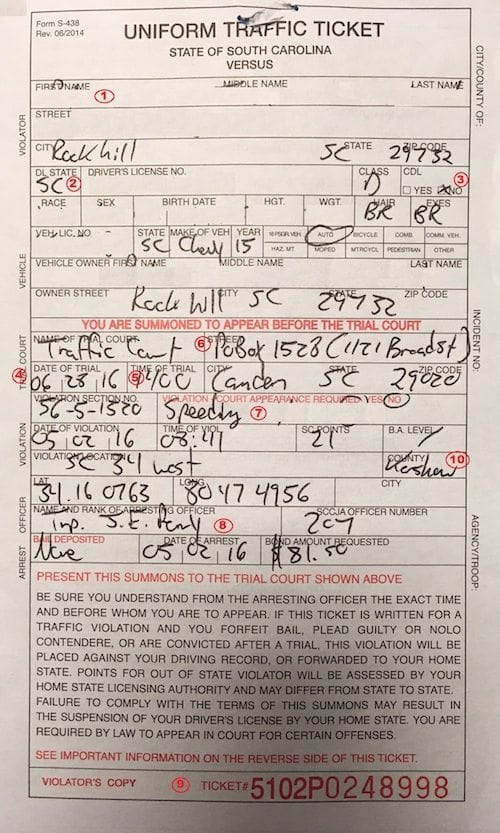 Form S-438
Rev. 06/2014
UNIFORM TRAFFIC TICKET
STATE OF SOUTH CAROLINA
VERSUS
FIRST NAME MIDDLE NAME LAST NAME
1
STREET
CITY Rock hill STATE SC ZIP CODE 29732
DL STATE SC 2 DRIVER'S LICENSE NO. CLASS D CDL 3
YES NO
RACE SEX BIRTH DATE HGT. WGT. HAIR BR EYES BR
VEH. LIC. NO. STATE SC MAKE OF VEH Chevy YEAR 15 AUTO BICYCLE COMB. COMM. VEH.
HAZ. MT MOPED MTRCYCL PEDESTRIAN OTHER
VEHICLE OWNER FIRST NAME MIDDLE NAME LAST NAME
OWNER STREET CITY Rock Hill STATE SC ZIP CODE 29732
YOU ARE SUMMONED TO APPEAR BEFORE THE TRIAL COURT
NAME OF TRIAL COURT Traffic Court 6 STREET PO Box 1528 (1121 Broad st)
4 DATE OF TRIAL 06 28 16 5 TIME OF TRIAL CITY Camden STATE SC ZIP CODE 29020
VIOLATION SECTION NO. 56-5-1520 VIOLATION Speeding 7 COURT APPEARANCE REQUIRED YES NO
DATE OF VIOLATION 05 02 16 TIME OF VIOL 08:41 SC POINTS B.A. LEVEL
VIOLATION LOCATION SC 34 west COUNTY Kershaw 10
LAT 34.16 0763 LONG 80 47 4956 CITY
NAME AND RANK OF ARRESTING OFFICER J.E. 8 SCCJA OFFICER NUMBER
BAIL DEPOSITED None DATE OF ARREST 05 02 16 BOND AMOUNT REQUESTED $81.50
PRESENT THIS SUMMONS TO THE TRIAL COURT SHOWN ABOVE
BE SURE YOU UNDERSTAND FROM THE ARRESTING OFFICER THE EXACT TIME
AND BEFORE WHOM YOU ARE TO APPEAR. IF THIS TICKET IS WRITTEN FOR A
TRAFFIC VIOLATION AND YOU FORFEIT BAIL, PLEAD GUILTY OR NOLO
CONTENDERE, OR ARE CONVICTED AFTER A TRIAL, THIS VIOLATION WILL BE
PLACED AGAINST YOUR DRIVING RECORD, OR FORWARDED TO YOUR HOME
STATE. POINTS FOR OUT OF STATE VIOLATOR WILL BE ASSESSED BY YOUR
HOME STATE LICENSING AUTHORITY AND MAY DIFFER FROM STATE TO STATE.
FAILURE TO COMPLY WITH THE TERMS OF THIS SUMMONS MAY RESULT IN
THE SUSPENSION OF YOUR DRIVER'S LICENSE BY YOUR HOME STATE. YOU ARE
REQUIRED BY LAW TO APPEAR IN COURT FOR CERTAIN OFFENSES.
SEE IMPORTANT INFORMATION ON THE REVERSE SIDE OF THIS TICKET.
VIOLATOR'S COPY 9 TICKET# 5102P0248998
VIOLATOR
VEHICLE
TRIAL COURT
VIOLATION
ARREST OFFICER
CITY/COUNTY OF:
INCIDENT NO.
AGENCY/TROOP: